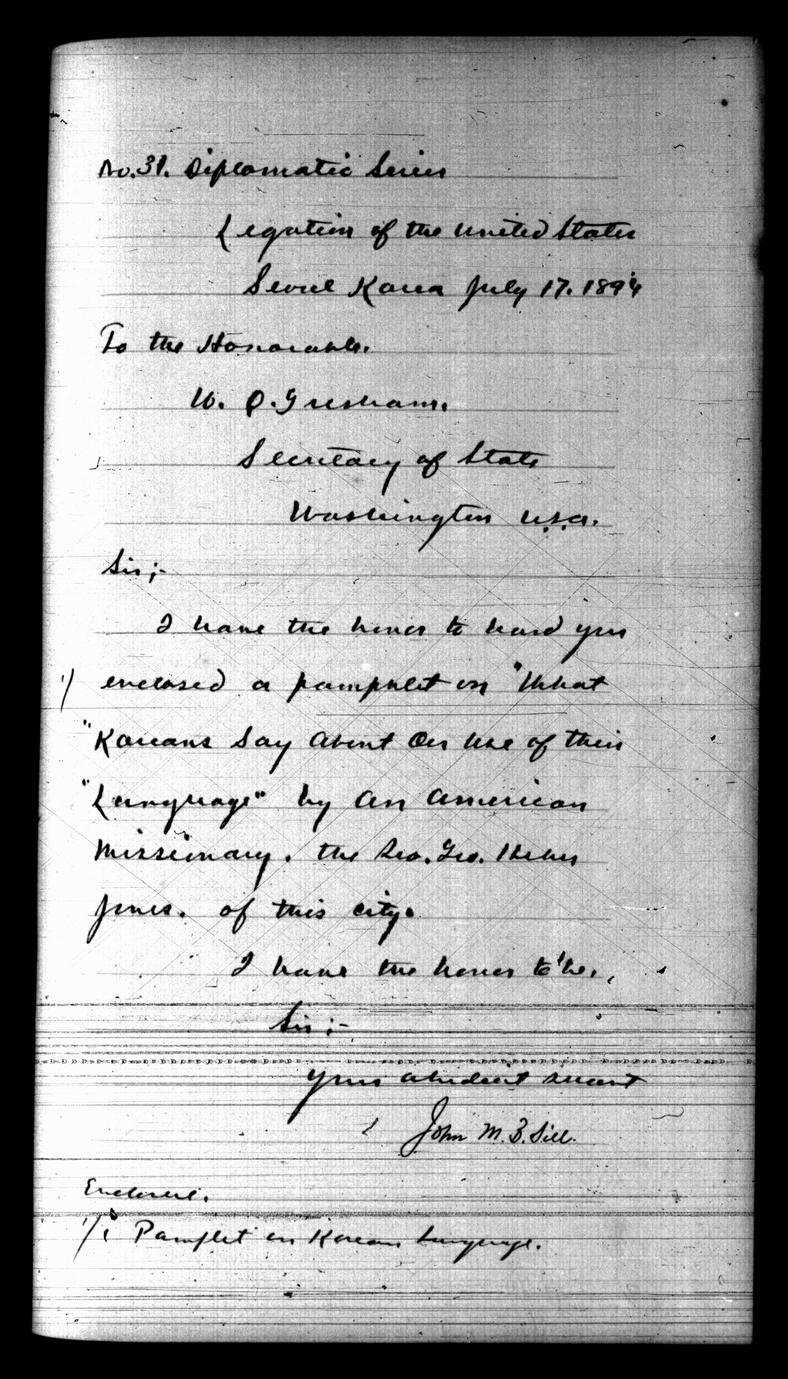 No. 31. Diplomatic Series
Legation of the United States
Seoul Korea July 17. 1894
To the Honorable.
W. Q. Gresham.
Secretary of State
Washington U.S.A.
Sir;-
I have the honor to hand you
1/ enclosed a pamphlet on "What
"Koreans Say About Our Use of their
"Language" by An American
Missionary. the Rev. Geo. Heber
Jones. of this city.
I have the honor to be,
Sir;-
Your obedient servant
John M. B. Sill.
Enclosure.
1/ Pamflet on Korean Language.